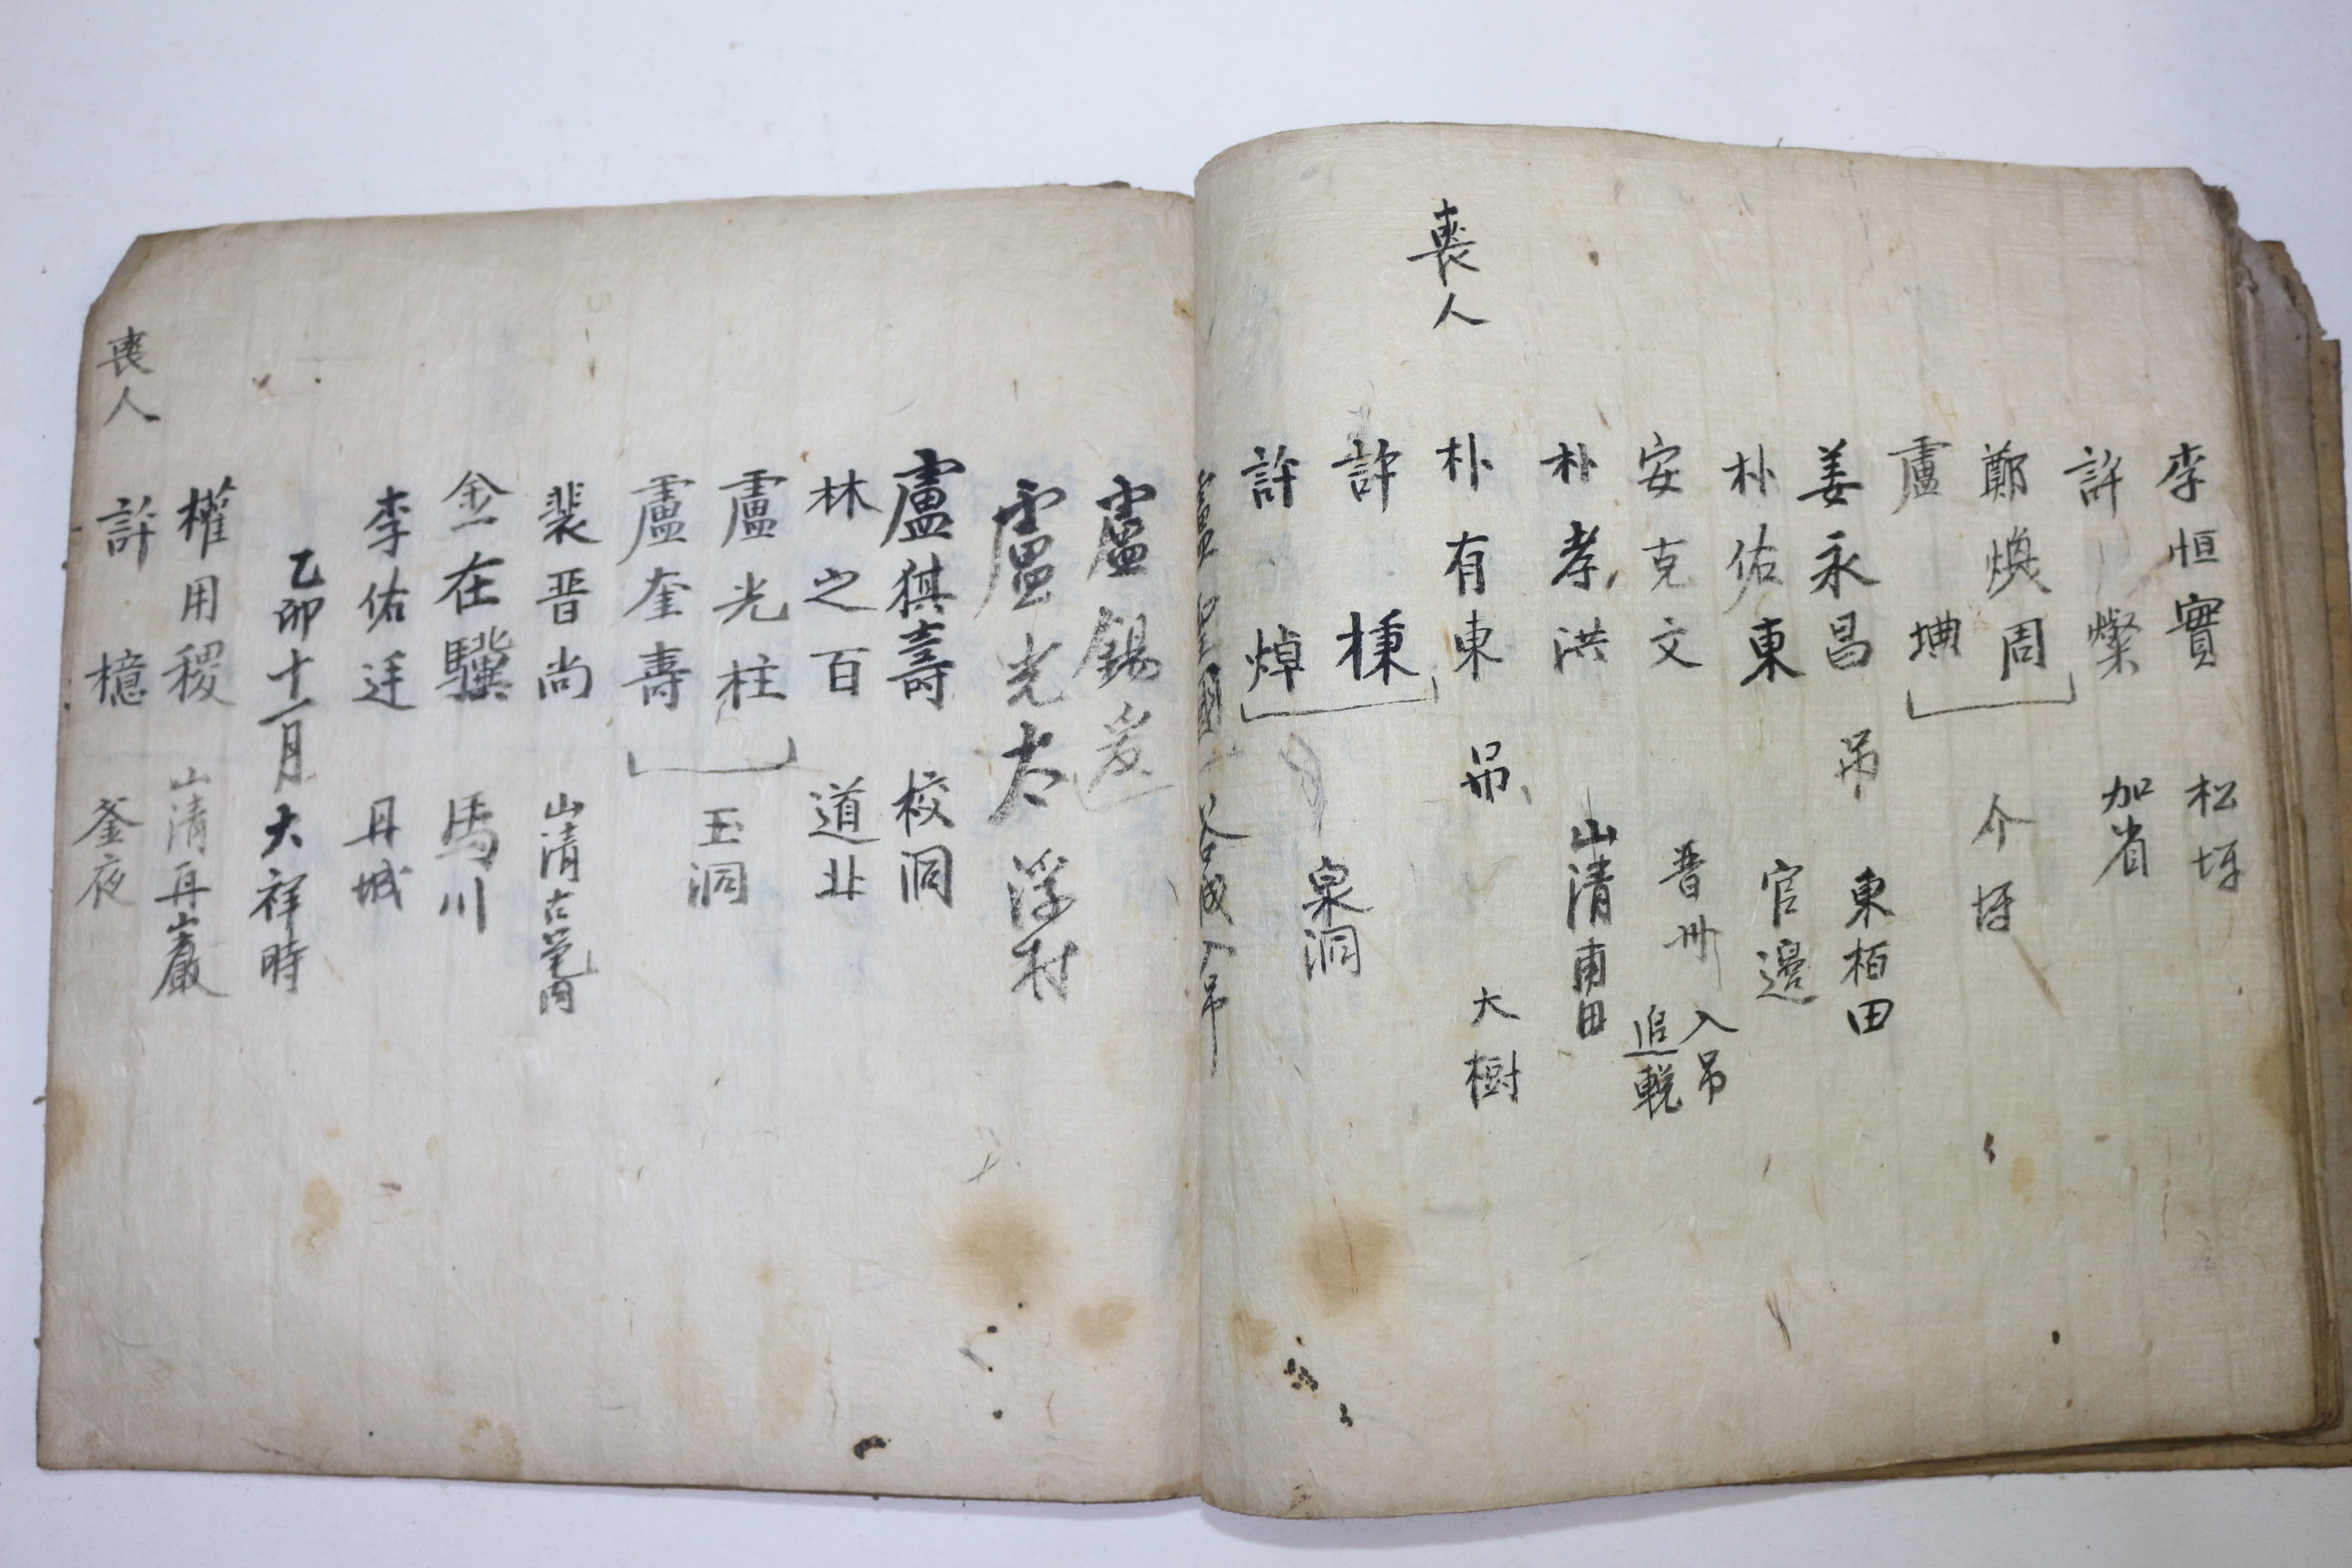 李恒實 松坪
許燦 加省
鄭煥周 介坪
盧㙉
姜永昌 吊 東栢田
朴佑東 官邊
安克文 晋州 入吊 追輓
朴孝洪 山清 甫田
喪人 朴有東 吊 大樹
許秉 泉洞
許焯
國 入吊
盧錫
盧光太 浮村
盧祺壽 校洞
林之百 道北
盧光柱 玉洞
盧奎壽
裴晋尚 山清古邑内
金在驥 馬川
李佑 丹城
乙卯十一月大祥時
權用稷 山清再巖
喪人 許檍 釜夜